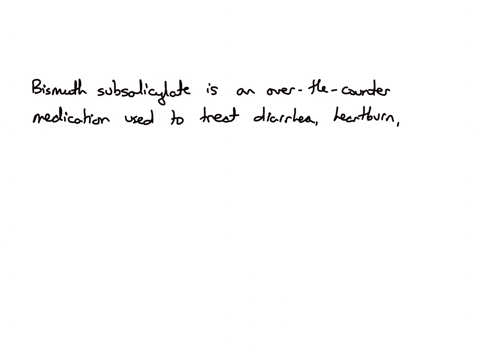 Bismuth subsalicylate is an over-the-counter
medication used to treat diarrhea, heartburn,